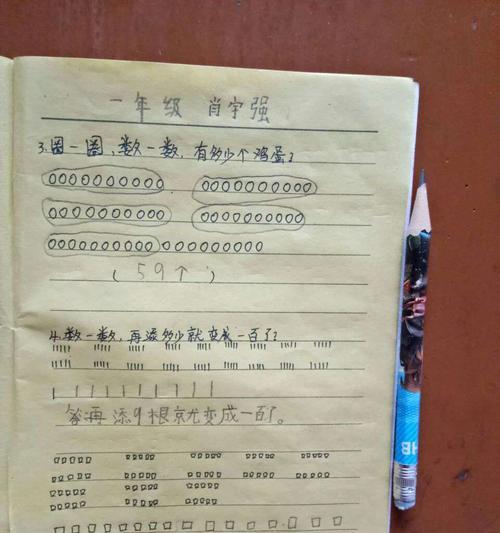 一年级 肖宇强
3.圈一圈,数一数,有多少个鸡蛋?
(59个)
4.数一数,再添多少就变成一百了?
答再添9根京尤变成一百了。
HB